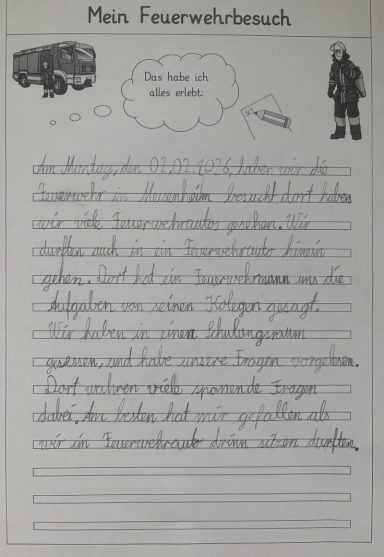 Mein Feuerwehrbesuch
Das habe ich
alles erlebt:
Am Montag, den 02.02.2026, haben wir die
Feuerwehr in Meisenheim besucht dort haben
wir viele Feuerwehrautos gesehen. Wir
durften auch in ein Feuerwehrauto hinein
gehen. Dort hat ein Feuerwehrmann uns die
Aufgaben von seiren Kolegen gesagt.
Wir haben in einen Schulungsraum
gesessen, und habe unsere Fragen vorgelesen.
Dort wahren viele spanende Fragen
dabei. Am besten hat mir gefallen als
wir im Feuerwehraub drinn sitzen durften.